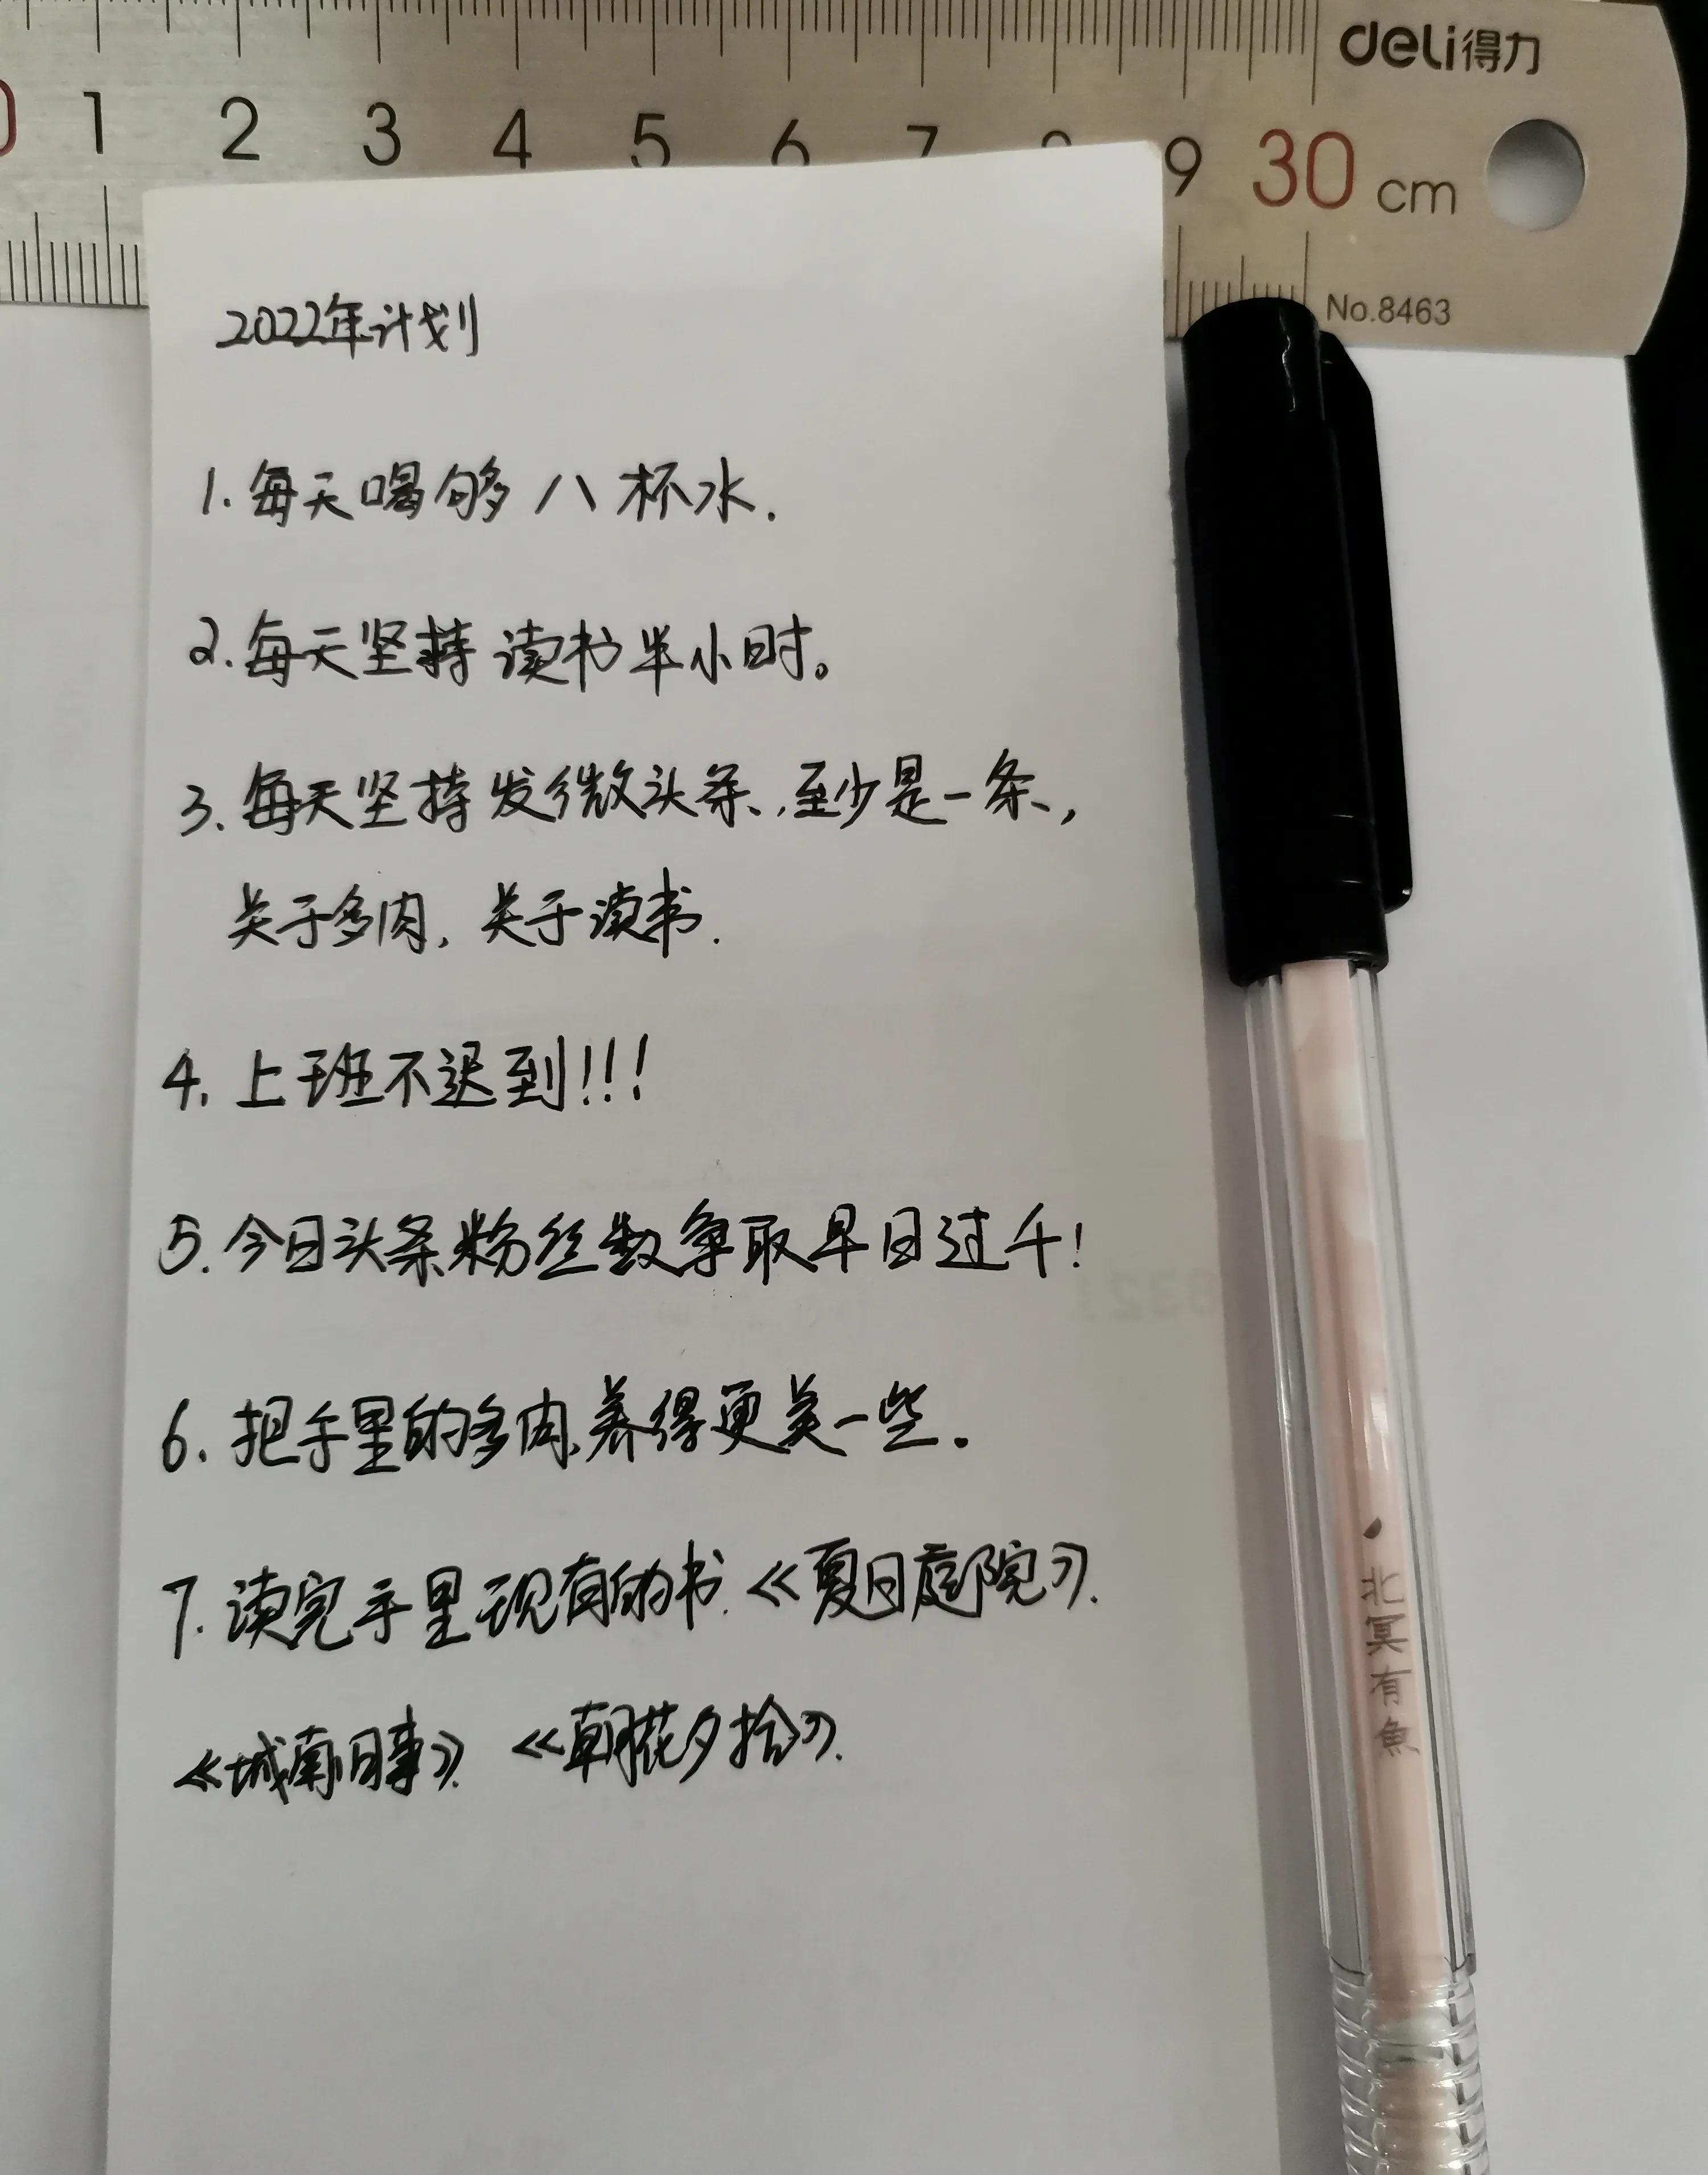 deli得力
0 1 2 3 4 5 6 7 8 9 30 cm
No.8463
2022年计划
1.每天喝够八杯水.
2.每天坚持读书半小时。
3.每天坚持发微头条,至少是一条,
关于多肉,关于读书.
4.上班不迟到!!!
5.今日头条粉丝数争取早日过千!
6.把手里的多肉养得更美一些.
7.读完手里现有的书.《夏日庭院》.
《城南旧事》.《朝花夕拾》.
北冥有魚